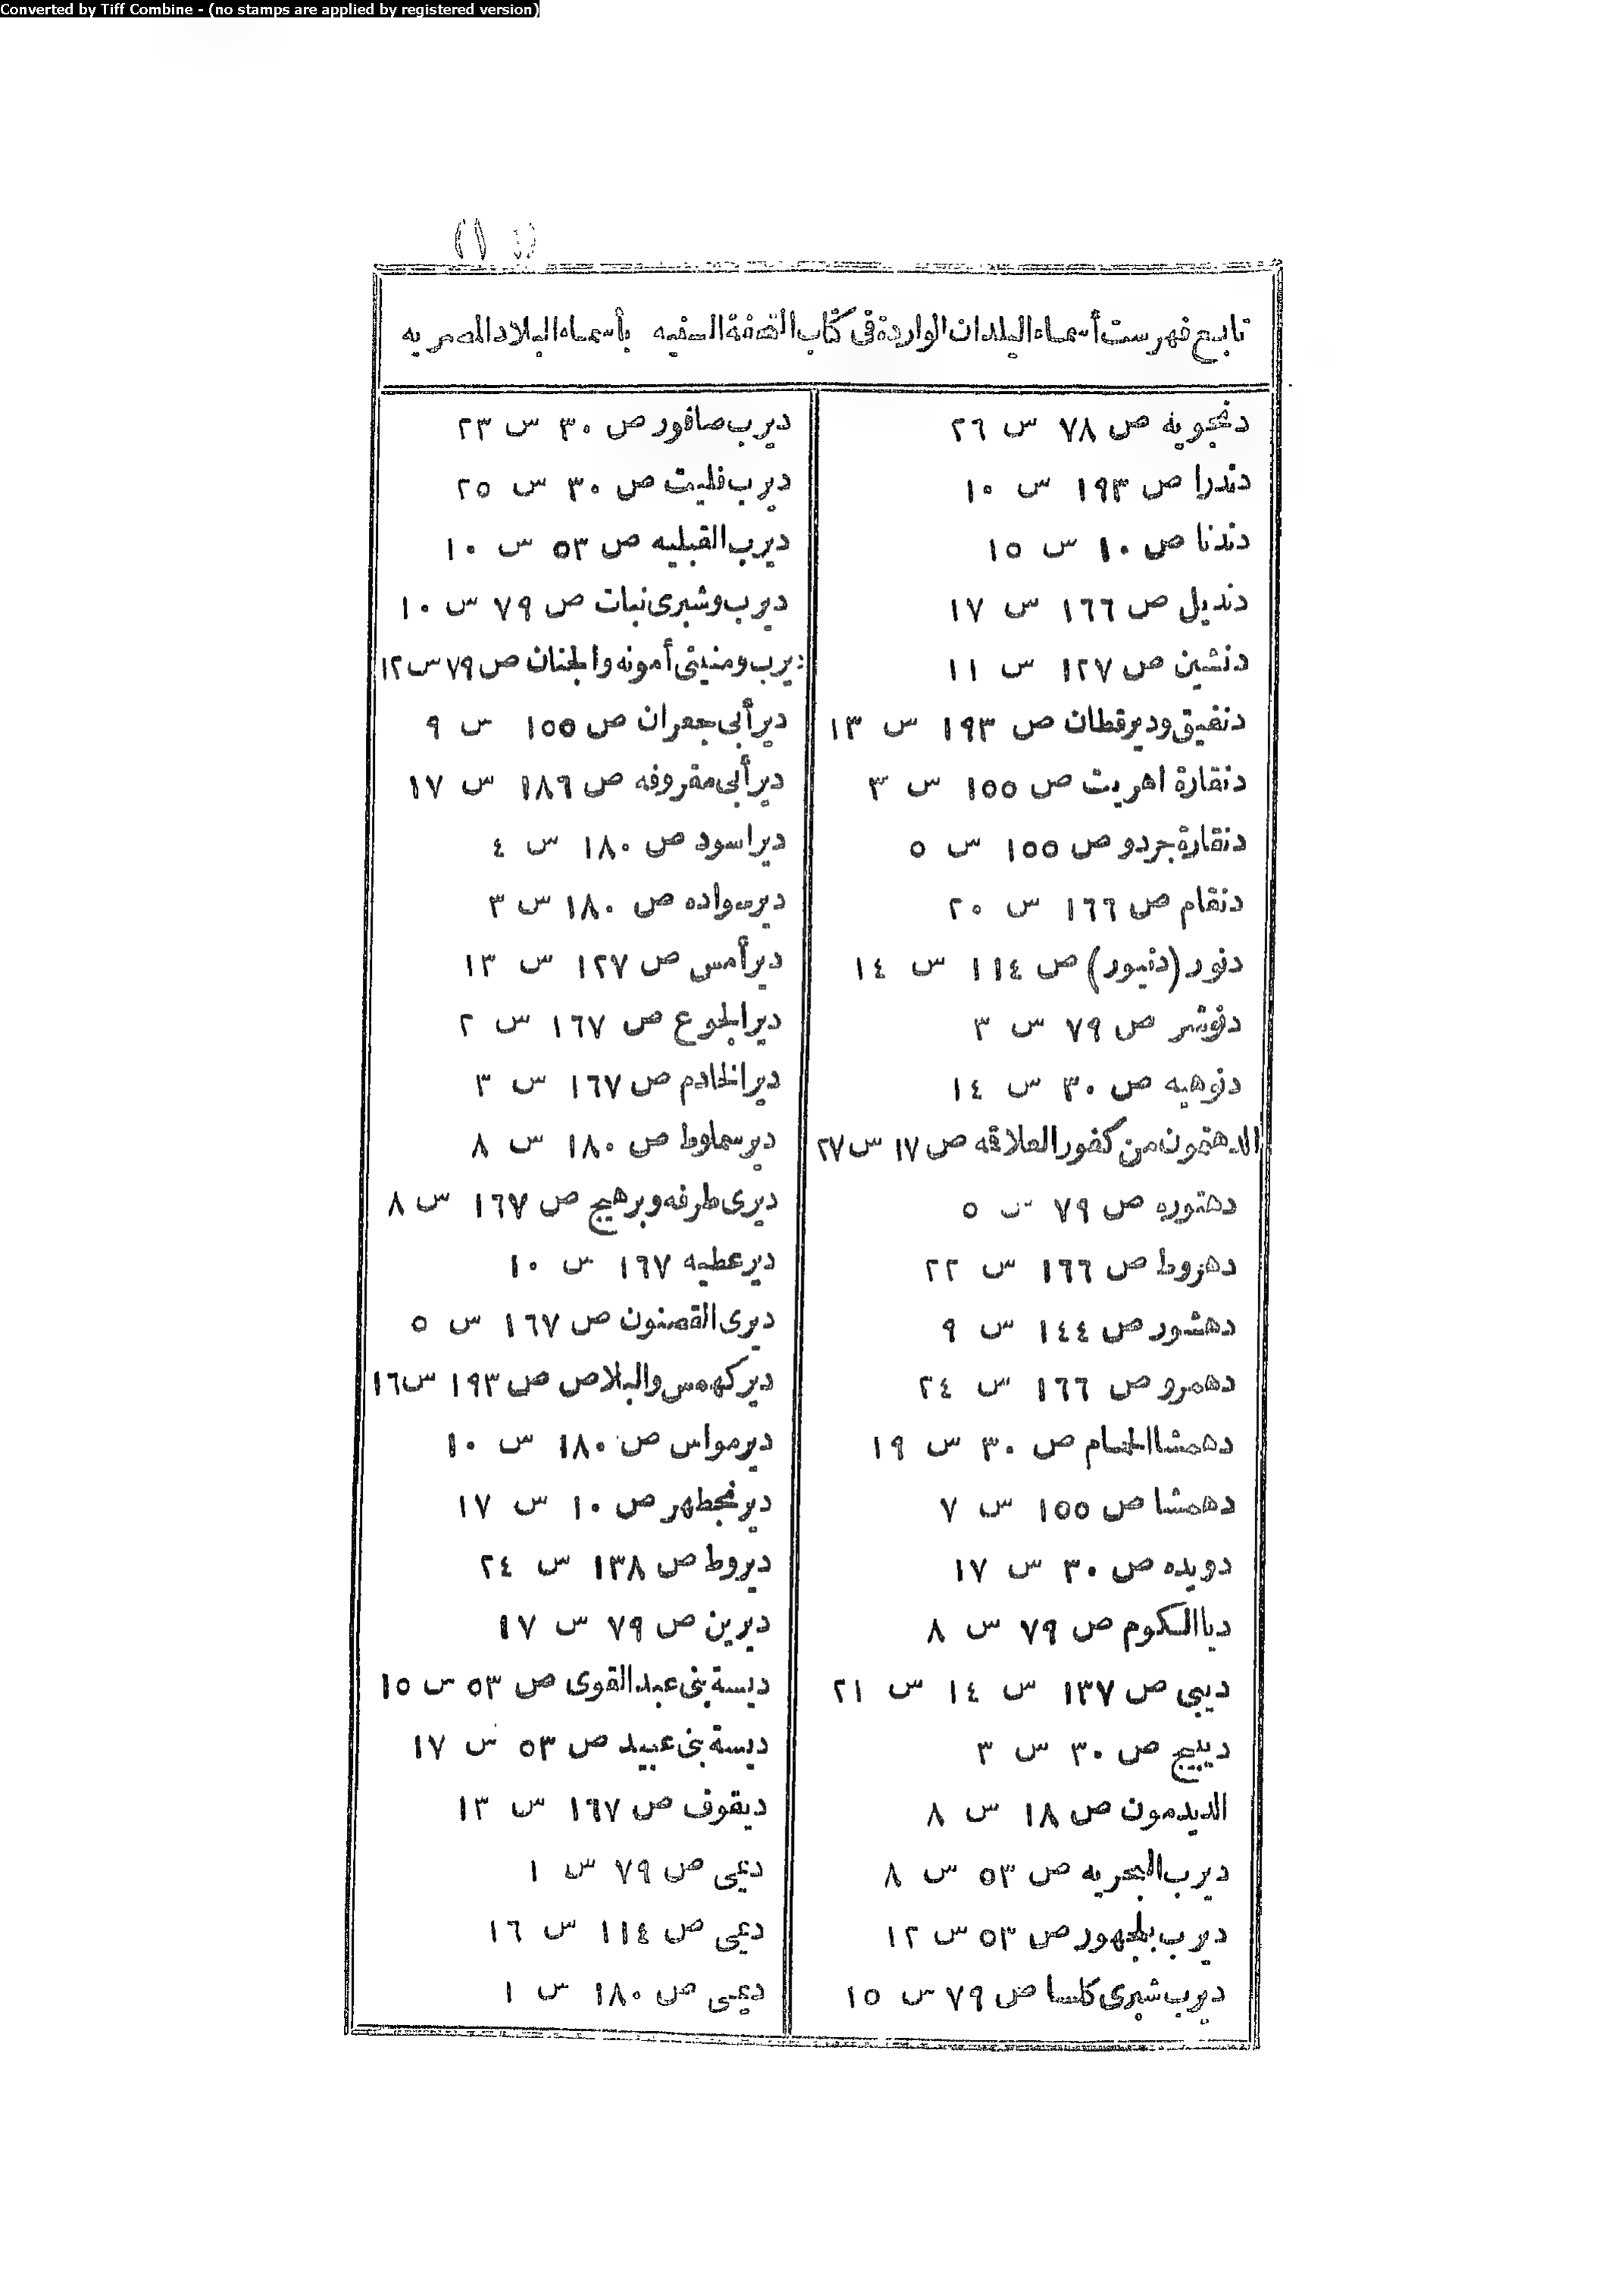 Converted by Tiff Combine - (no stamps are applied by registered version)
تابع فهرست أسماء البلدان الواردة فى كتاب التحفة السنيه بأسماء البلاد المصريه
دنجويه ص ٧٨ س ٢٦
دندرا ص ١٩٣ س ١٠
دندنا ص ١٠ س ١٥
دنديل ص ١٦٦ س ١٧
دنشين ص ١٢٧ س ١١
دنفيق وديرقطان ص ١٩٣ س ١٣
دنقارة اهريت ص ١٥٥ س ٣
دنقارة جردو ص ١٥٥ س ٥
دنقام ص ١٦٦ س ٢٠
دنور (دنيور) ص ١١٤ س ١٤
دنوشر ص ٧٩ س ٣
دنوهيه ص ٣٠ س ١٤
الدهتمون من كفور العلاقه ص ١٧ س ٢٧
دهتوره ص ٧٩ س ٥
دهروط ص ١٦٦ س ٢٢
دهشور ص ١٤٤ س ٩
دهمرو ص ١٦٦ س ٢٤
دهمشا الحمام ص ٣٠ س ١٩
دهمشا ص ١٥٥ س ٧
دويده ص ٣٠ س ١٧
ديا الكوم ص ٧٩ س ٨
ديبى ص ١٣٧ س ١٤ س ٢١
ديبيج ص ٣٠ س ٣
الديدمون ص ١٨ س ٨
ديرب البحريه ص ٥٣ س ٨
ديرب بلجهور ص ٥٣ س ١٢
ديرب شبرى كلسا ص ٧٩ س ١٥
ديرب صافور ص ٣٠ س ٢٣
ديرب فليت ص ٣٠ س ٢٥
ديرب القبليه ص ٥٣ س ١٠
ديرب وشبرى نبات ص ٧٩ س ١٠
ديرب ومنيتى أمونه والجنان ص ٧٩ س ١٢
دير أبى جعران ص ١٥٥ س ٩
دير أبى مقروفه ص ١٨٦ س ١٧
دير اسود ص ١٨٠ س ٤
ديرسواده ص ١٨٠ س ٣
دير أمس ص ١٢٧ س ١٣
دير الجوع ص ١٦٧ س ٢
دير الخادم ص ١٦٧ س ٣
ديرسماوط ص ١٨٠ س ٨
ديرى طرفه وبرهيج ص ١٦٧ س ٨
ديرعطيه ١٦٧ س ١٠
ديرى القصنون ص ١٦٧ س ٥
دير كهمس والبلاص ص ١٩٣ س ١٦
ديرمواس ص ١٨٠ س ١٠
دير نجطهر ص ١٠ س ١٧
ديروط ص ١٣٨ س ٢٤
ديرين ص ٧٩ س ١٧
ديسة بنى عبد القوى ص ٥٣ س ١٥
ديسة بنى عبيد ص ٥٣ س ١٧
ديقوف ص ١٦٧ س ١٣
ديمى ص ٧٩ س ١
ديمى ص ١١٤ س ١٦
ديمى ص ١٨٠ س ١